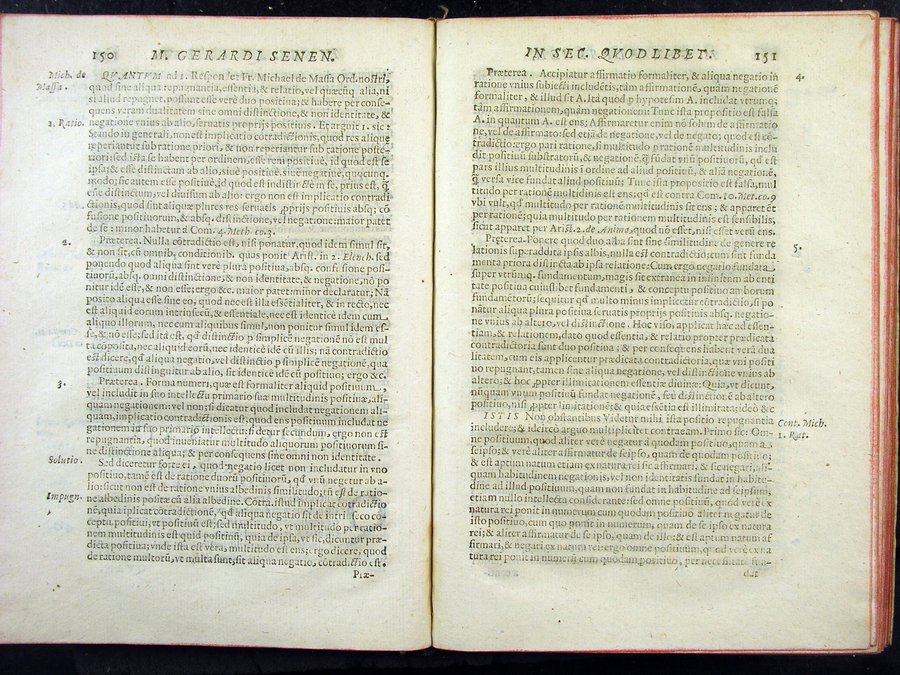 150 M. GERARDI SENEN.
Mich. de
Massa.
QVANTVM ad 1. Respondet Fr. Michael de Massa Ord. nostri,
quod sine aliqua repugnantia, essentia, & relatio, vel quæcunq; alia, ni
si aliud repugnet, possunt esse verè duo positiua; & habere per conse-
quens veram dualitatem sine omni distinctione, & non identitate, &
1. Ratio.
negatione vnius ab alio, seruatis proprijs positiuis. Et arguit 1. sic:
Stando in generali, non est implicatio cōtradictionis, quod res aliquæ
reperiantur sub ratione priori, & non reperiantur sub ratione poste-
riori: sed ista se habent per ordinem, esse rem positiuè, id quod est se
ipsa; & esse distinctam ab alio, siuè positiuè, siuè negatiuè, quocunq.
modo; sic autem esse positiuè, id quod est indistinctè in se, prius est, q̃
esse distinctum, vel diuisum ab alio: ergo non est implicatio contradi
ctionis, quod sint aliquæ plures res seruatis proprijs positis absq; cō
fusione positiuorum, & absq. distinctione, vel negatione: maior patet
de se: minor habetur à Com. 4. Meth. co. 3.
2.
Præterea. Nulla cōtradictio est, nisi ponatur, quod idem simul sit,
& non sit, cū omnib. conditionib. quas ponit Arist. in 2. Elench. sed
ponendo quod aliqua sint verè plura positiua, absq. confusione posi-
tiuorū, absq. omni distinctione, & non identitate, & negatione, nō po
nitur idē esse, & non esse; ergo &c. maior patet: minor declaratur; Nā
posito aliqua esse sine eo, quod nec est illa essētialiter, & in recto, nec
est aliquid eorum intrinsecū, & essentiale, nec est identicè idem cum
aliquo illorum, nec cum aliquibus simul, non ponitur simul idem es-
se, & nō esse; sed ità est, qd distinctio p simplicē negationē nō est mul
ta cōposita, nec aliquid eorū, nec identicè idē cū illis; na contradictio
est dicere, qd aliqua negatio, vel distinctio p simplicē negationē, qua
positiuum distinguitur ab alio, sit identicè idē cū positiuo; ergo &c.
3.
Præterea. Forma numeri, quæ est formaliter aliquid positiuum,
vel includit in suo intellectu primario suæ multitudinis positiuæ, ali-
quam negationem; vel non; si dicatur quod includat negationem ali-
quam, implicatio contradictionis est, quod ens positiuum includat ne
gationem in suo primario intellectu; si detur secundum, ergo non est
repugnantia, quod inueniatur multitudo aliquorum positiuorum si-
ne distinctione aliqua; & per consequens sine omni non identitate.
Solutio.
Sed diceretur forte ei, quod negatio licet non includatur in vno
positiuo, tamē est de ratione duorū positiuorū, qd vnū negetur ab a-
lio: sicut non est de ratione vnius albedinis similitudo; tñ est de ratio-
Impugn.
ne albedinis positæ cū alia albedine. Cōtra. istud implicat cōtradictio
nē, quia iplicat cōtradictionē, qd aliqua negatio sit de intrinseco cō-
ceptu positiui, vt positiuū est; sed multitudo, vt multitudo per ratio-
nem multitudinis est quid positiuū, quia de ipsa, vt sic, dicuntur præ-
dicta positiua; vnde ista est vera, multitudo est ens; ergo dicere, quod
de ratione multorū, vt multa sunt, sit aliqua negatio, cōtradictio est.
Præ-
IN SEC. QVODLIBET. 151
4.
Præterea. Accipiatur affirmatio formaliter, & aliqua negatio in
ratione vnius subiecti includētis, tàm affirmationem, quàm negationē
formaliter, & illud sit A. Ità quod p hypotesim A. includat vtrunq;
tàm affirmationem, quàm negationem: Tunc ista propositio est falsa
A. in quantum A. est ens; Affirmatur enim nō solum de affirmatio
ne, vel de affirmato: sed etiā de negatione, vel de negato; quod est cō-
tradictio: ergo pari ratione, si multitudo p rationē multitudinis inclu
dit positiuum substratorū, & negationē, q̃ fūdat vnū positiuorū, qd est
pars illius multitudinis i ordine ad aliud positiuū, & aliā negationē,
q̃ versa vice fundat aliud positiuū; Tunc ista propositio est falsa, mul
titudo per rationē multitudinis est ens; qd est contra Com. 10. Met. co. 9
vbi vult, qd multitudo per rationem multitudinis sit ens; & apparet ēt
per rationē; quia multitudo per rationem multitudinis est sensibilis,
sicut apparet per Arist. 2. de Anima, quod nō esset, nisi esset verū ens.
5.
Præterea. Ponere quod duo alba sint sine similitudine de genere re
lationis superaddita ipsis albis, nulla est contradictio; cum sint funda
menta priora distincta ab ipsa relatione: Cum ergo negatio fundata
super vtrumq. fundamentum, magis sit extranea in infinitum ab enti
tate positiua cuiuslibet fundamenti, & conceptu positiuo amborum
fundamētorū; sequitur qd multo minus implicetur cōtradictio, si po
natur aliqua plura positiua seruatis proprijs positiuis absq. negatio-
ne vnius ab altero, vel distinctione. Hoc viso, applicat hæc ad essen-
tiam, & relationem, dato quod essentia, & relatio propter prædicata
contradictoria sunt duo positiua; & per consequens habent verā dua
litatem, cum eis applicentur prædicata contradictoria, quæ vni positi
uo repugnant, tamen sine aliqua negatione, vel distinctione vnius ab
altero; & hoc ,ppter illimitationem essentiæ diuinæ: Quia, vt dicunt,
nūquam vnum positiuū fundat negationē, seu distinctionē ab altero
positiuo, nisi ,ppter limitationē; & quia essētia est illimitata; ideò &c
Cont. Mich.
ISTIS Non obstantibus Videtur mihi ista positio repugnantiā
includere; & ideircò arguo multipliciter contra eam. Primo sic: Om-
1. Rat.
ne positiuum, quod aliter verè negatur à quodam positiuo, quàm à
seipso; & verè aliter affirmatur de seipso, quàm de quodam positiuo;
& est aptum natum etiam ex natura rei sic affirmari, & sic negari, ali-
quam habitudinem negationis, vel non identitatis fundat in habitu-
dine ad illud positiuum, quam non fundat in habitudine ad seipsum;
etiam nullo intellectu considerante: sed omne positiuū, quod verè ex
natura rei ponit in numerum cum quodam positiuo aliter negatur de
isto positiuo, cum quo ponit in numerum, quàm de se ipso ex natura
rei; & aliter affirmatur de se ipso, quàm de illo; & est aptum natum af
firmari, & negari ex natura rei: ergo omne positiuum, quod verè ex na
tura rei ponit in numerū cum quodam positiuo, per necessitatē fun-
dat